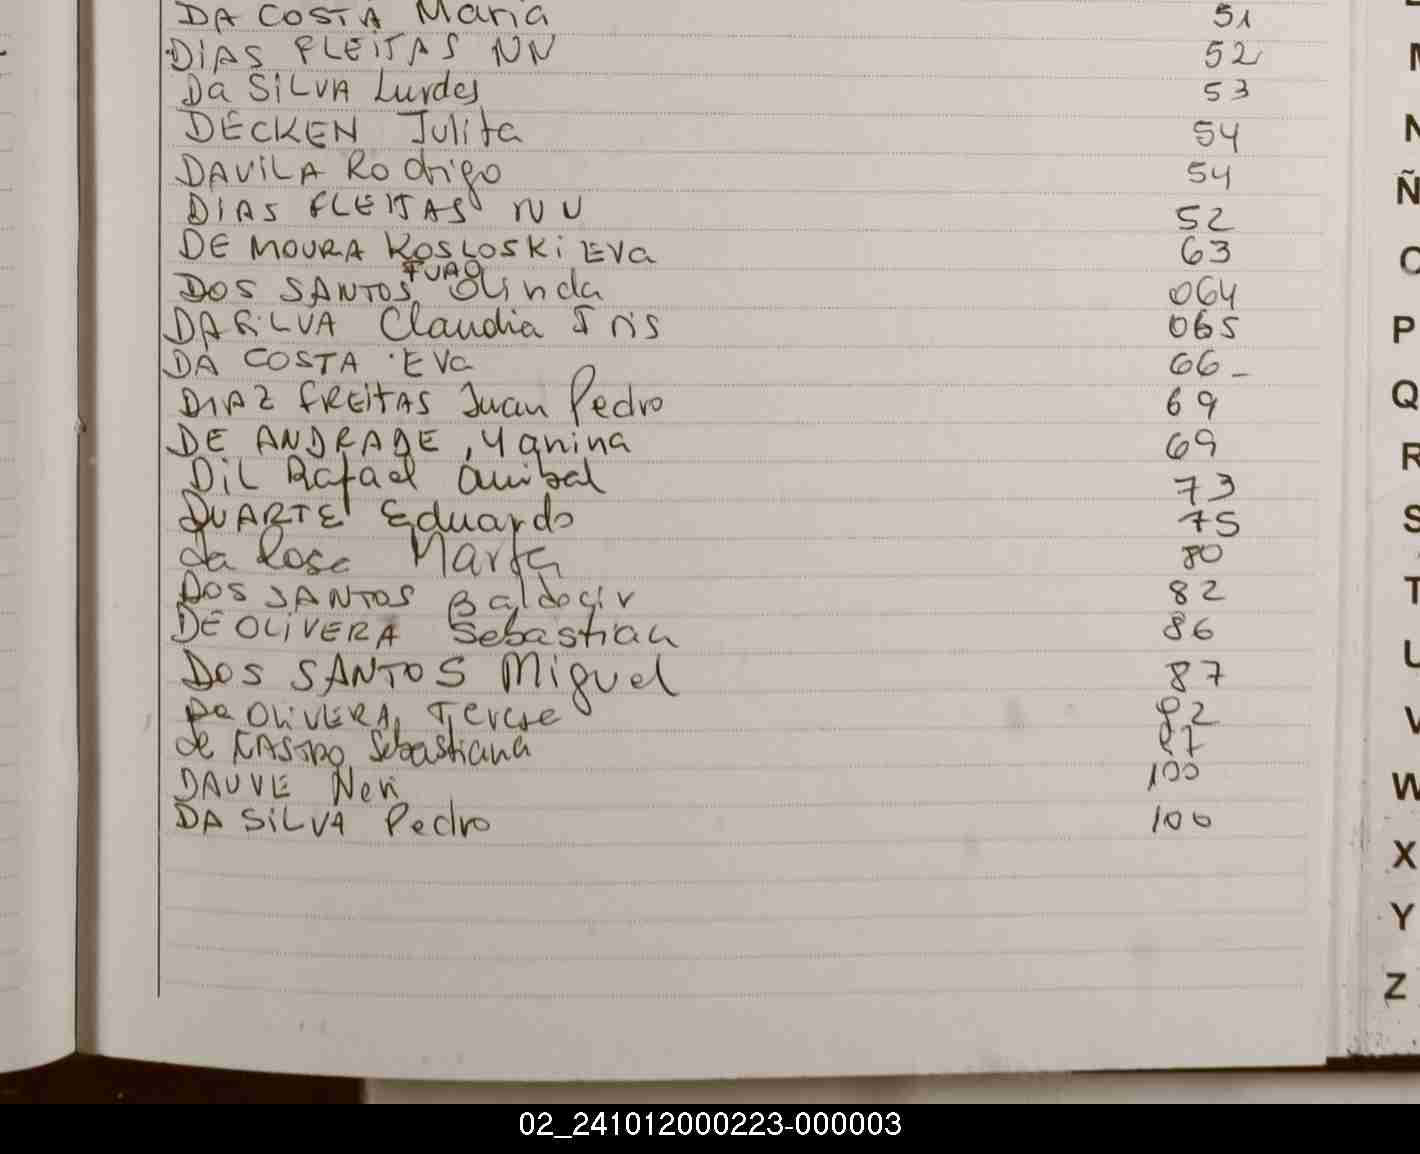 DA COSTA Maria 51
DIAS FLEITAS NN 52
Da SILVA Lurdes 53
DECKEN Julita 54
DAVILA Rodrigo 54
DIAS FLEITAS NN 52
DE MOURA KOSLOSKI EVA 63
DOS SANTOS Olinda 064
DA SILVA Claudia Iris 065
DA COSTA EVA 66_
DIAZ FREITAS Juan Pedro 69
DE ANDRADE, Yanina 69
DIL Rafael Anibal 73
DUARTE Eduardo 75
da Rosa Marta 80
DOS SANTOS Baldocir 82
DE OLIVERA Sebastian 86
DOS SANTOS Miguel 87
De OLIVERA, Terese 92
de CASTRO Sebastiana 97
DAUVE Neri 100
DA SILVA Pedro 100
M
N
Ñ
O
P
Q
R
S
T
U
V
W
X
Y
Z
02_241012000223-000003